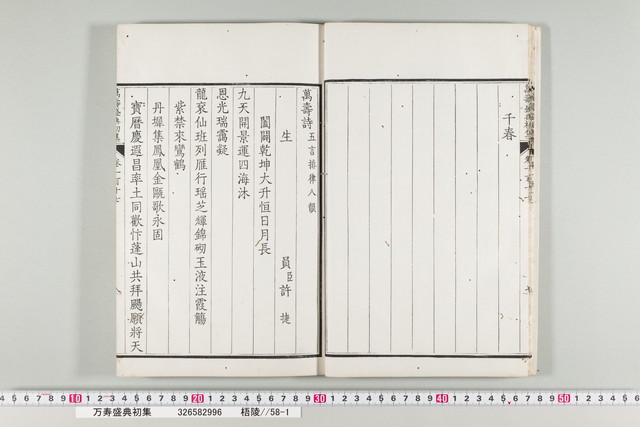 千春
萬壽詩五言排律八韻
生員臣許捷
閶闢乾坤大升恒日月長
九天開景運四海沐
恩光瑞靄凝
龍袞仙班列雁行瑶芝輝錦砌玉液注霞觴
紫禁來鸞鶴
丹墀集鳳凰金甌歌永固
寶曆慶遐昌率土同歡忭蓬山共拜颺願將天
萬壽盛典初集 卷一百十七
4 5 6 7 8 9 10 1 2 3 4 5 6 7 8 9 20 1 2 3 4 5 6 7 8 9 30 1 2 3 4 5 6 7 8 9 40 1 2 3 4 5 6 7 8 9 50 1 2 3 4 5 6
万寿盛典初集 326582996 梧陵//58-1